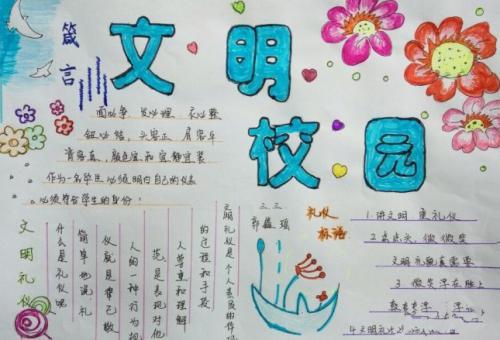 文明
校园
箴言
面必净 发必理 衣必整
钮必结,头容正 肩容平
胸容宽,颜色宜和 宜静宜庄
作为一名学生必须明白自己的仪表
必须符合学生的身份!
文明礼仪
什么是礼仪呢
简单地说,礼
仪就是律己敬
人的一种行为规
范,是表现对他
人尊重和理解
的过程和手段
文明礼仪是个人素质的
三、三
郭
礼仪
标语
1.讲文明 重礼仪
2.点点头,微微笑
文明礼貌真需要
3.微笑浮在脸上
4.文明礼